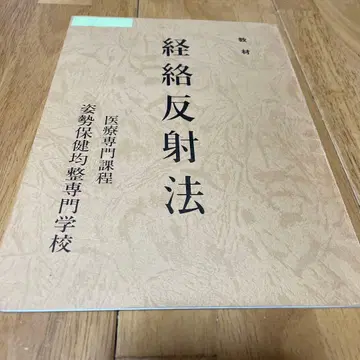 教材
経絡反射法
医療専門課程
姿勢保健均整専門学校